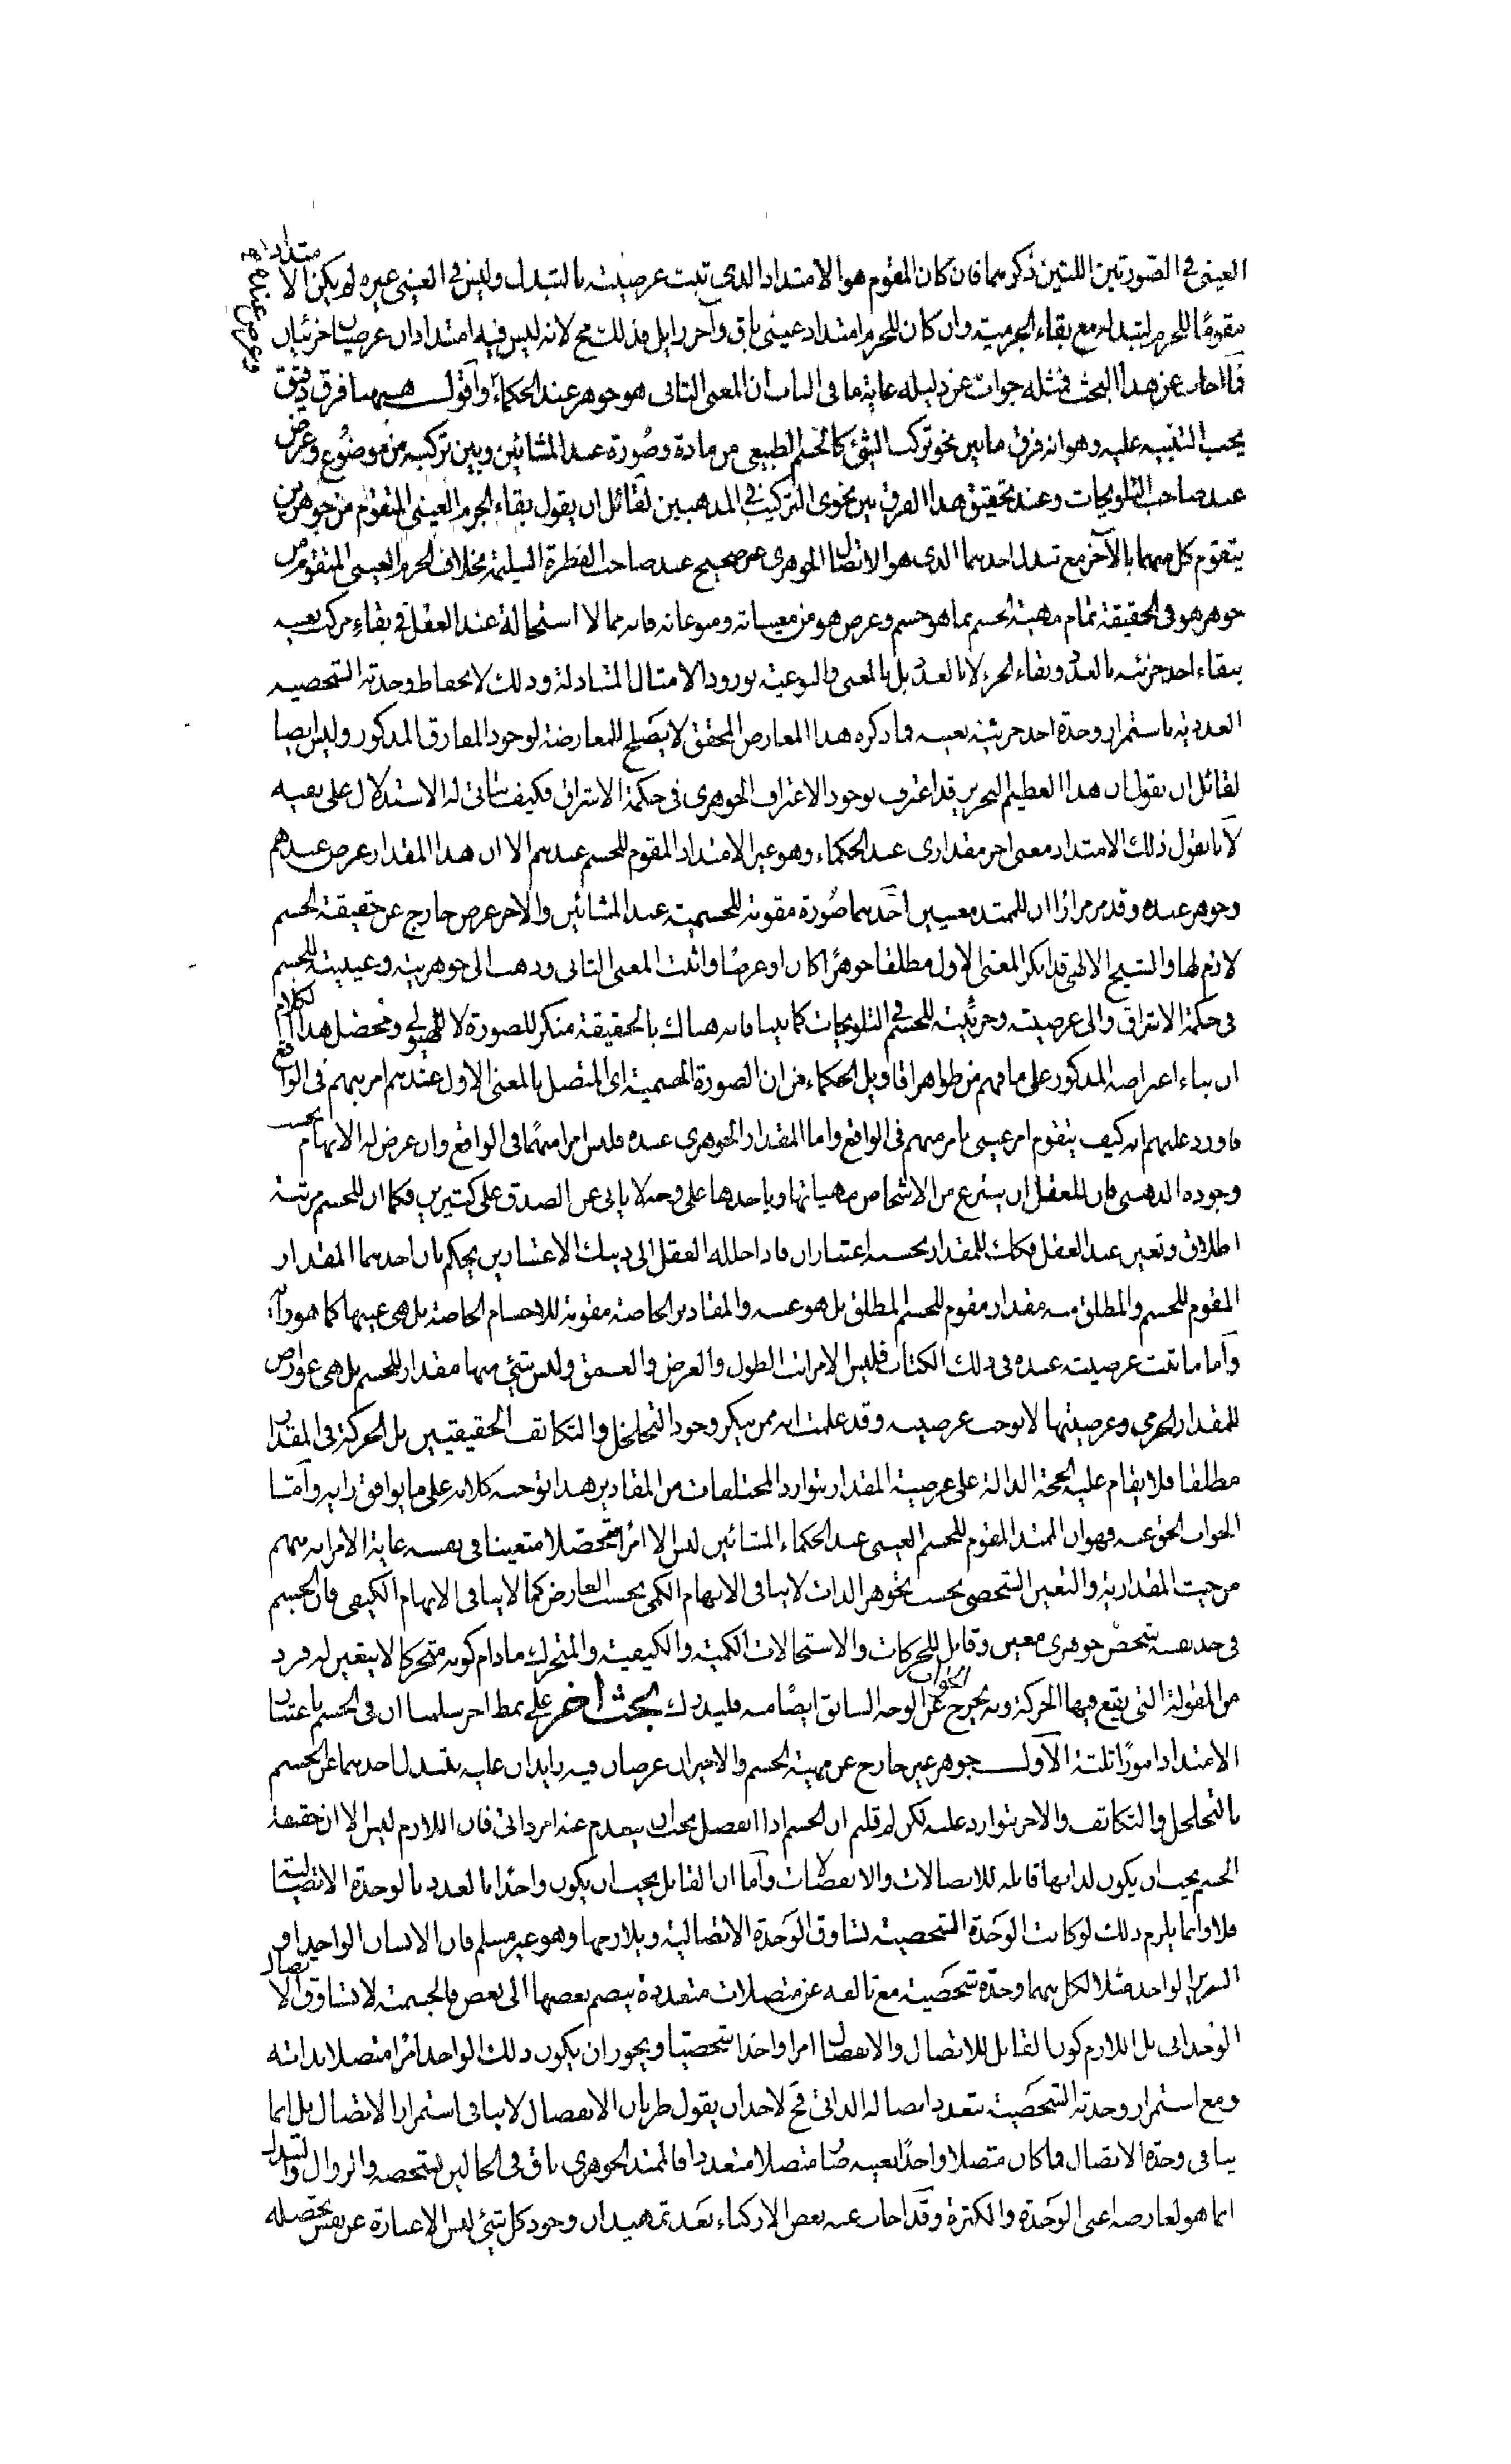 العينى فى الصورتين اللتين ذكرهما فان كان المقوم هو الامتداد الذى تثبت عرضيته بالتبدل وليس فى العينى غيره لم يكن الامتداد
مقومًا للجرم لتبدله مع بقاء الجرمية وان كان للجرم امتداد عينى باق وآخر زايل فذلك مح لانه ليس فيه امتدادان عرضيان اخرئيان
وعرض عنده
فما اجاب عن هذا البحث فمثله جواب عن دليله غاية ما فى الباب ان المعنى الثانى هو جوهر عند الحكماء وأقول هيهنا فرق دقيق
يجب التنبيه عليه وهو انه فرق ما بين نحو تركب الشئ كالجسم الطبيعى من مادة وصورة عند المشائين وبين تركبه من موضوع وعرض
عند صاحب التلويحات وعند تحقيق هذا الفرق بين نحوى التركيب فى المذهبين لقائل ان يقول بقاء الجرم العينى المتقوم من جوهرين
يتقوم كل منهما بالآخر مع تبدل احدهما الذى هو الاتصال الجوهرى غير صحيح عند صاحب الفطرة السليمة بخلاف الجرم العينى المتقوم من
جوهر هو فى الحقيقة تمام مهية الجسم بما هو جسم وعرض هو من معيناته ومنوعاته فانه مما لا استحالة عند العقل فى بقاء مركب بعينه
ببقاء احد جزئيه بالعدد وبقاء الجزء لا بالعدد بل بالمعنى والنوعية بورود الامثال المتبادلة وذلك لانحفاظ وحدته الشخصية
العددية باستمرار وحدة احد جزئيه بعينه فما ذكره هذا المعارض المحقق لا يصلح للمعارضة لوجود الفارق المذكور وليس ايضا
لقائل ان يقول ان هذا العظيم النحرير قد اعترف بوجود الجوهرى فى حكمة الاشراق فكيف يتاتى له الاستدلال على نفيه
لانا نقول ذلك الامتداد معنى اخر مقدارى عند الحكماء وهو غير الامتداد المقوم للجسم عندهم الا ان هذا المقدار عرض عندهم
وجوهر عنده وقد مر مرارًا ان للممتد معنيين أحدهما صورة مقومة للجسمية عند المشائين والآخر عرض خارج عن حقيقة الجسم
لازم لها والشيخ الالهى قد انكر المعنى الاول مطلقا جوهرًا كان او عرضًا واثبت المعنى الثانى وذهب الى جوهريته وعينيته للجسم
فى حكمة الاشراق والى عرضيته وجزئيته للجسم فى التلويحات كما بينا فانه هناك بالحقيقة منكر للصورة لا للهيولى ومحصل هذا الكلام
ان بناء اعتراضه المذكور على ما فهم من ظواهر اقاويل الحكماء من ان الصورة الجسمية اى المتصل بالمعنى الاول عندهم امر مبهم فى الواقع
فاورد عليهم انه كيف يتقوم امر عينى بامر مبهم فى الواقع واما المقدار الجوهرى عنده فليس امرا مبهمًا فى الواقع وان عرض له الابهام بحسب
وجوده الذهنى فان للعقل ان ينتزع من الاشخاص مهياتها وياخذها على وجه لا يابى عن الصدق على كثيرين فكما ان للجسم مرتبة
اطلاق وتعين عند العقل فكذلك للمقدار بحسبه اعتباران فاذا حلله العقل الى ذينك الاعتبارين يحكم بان احدهما المقدار
المقوم للجسم والمطلق منه مقدار مقوم للجسم المطلق بل هو عينه والمقادير الخاصة مقومة للاجسام الخاصة بل هى عينها كما هو رأيه
وأما ما تثبت عرضيته عنده فى ذلك الكتاب فليس الا مراتب الطول والعرض والعمق وليس شئ منها مقدار للجسم بل هى عوارض
للمقدار الجرمى وعرضيتها لا توجب عرضيته وقد علمت انه ممن ينكر وجود التخلخل والتكاثف الحقيقيين بل الحركة فى المقدار
مطلقا فلا يقام عليه الحجة الدالة على عرضية المقدار بتوارد المختلفات من المقادير هذا توجيه كلامه على ما يوافق رايه وأما
الجواب الحق عنه فهو ان الممتد المقوم للجسم العينى عند الحكماء المشائين ليس الا امرًا متحصلا متعينا فى نفسه غاية الامر انه مبهم
من حيث المقدارية والتعين الشخصى بحسب جوهر الذات لا ينافى الابهام الكمى بحسب العارض كما لا ينافى الابهام الكيفى فان الجسم
فى حد نفسه شخص جوهرى معين وقابل للحركات والاستحالات الكمية والكيفية والمتحرك مادام كونه متحركا لا يتعين له فرد
من المقولة التى يقع فيها الحركة وبه يخرج الجواب عن الوجه السابق ايضًا منه فليدرك بحث اخر على نمط اخر سلمنا ان فى الجسم باعتبار
الامتداد امورًا ثلثة الأول جوهر غير خارج عن مهية الجسم والاخيران عرضان فيه زايدان عليه يتبدل احدهما عن الجسم
بالتخلخل والتكاثف والاخر بتوارد عليه لكن لم قلتم ان الجسم اذا انفصل يجب ان ينعدم عنه امر ذاتى فان اللازم ليس الا ان حقيقة
الجسم يجب ان يكون لذاتها قابلة للاتصالات والانفصالات وأما ان القابل يجب ان يكون واحدًا بالعدد بالوحدة الاتصالية
فلا وانما يلزم ذلك لو كانت الوحدة الشخصية تساوق الوحدة الاتصالية ويلازمها وهو غير مسلم فان الانسان الواحد او
السرير الواحد مثلا لكل منهما وحدة شخصية مع تالفه عن متصلات متعددة ينضم بعضها الى بعض فالجسمية لا تساوق الاتصال
الوحدانى بل اللازم كون القابل للاتصال والانفصال امرا واحدا شخصيًا ويجوز ان يكون ذلك الواحد امرًا متصلا بذاته
ومع استمرار وحدته الشخصية يتعدد اتصاله الذاتى فح لاحد ان يقول طريان الانفصال لا ينافى استمرار الاتصال بل انما
ينافى وحدة الاتصال فما كان متصلا واحدًا بعينه صار متصلا متعددا فالممتد الجوهرى باق فى الحالين بشخصه والزوال والتبدل
انما هو لعارضه اعنى الوحدة والكثرة وقد اجاب عنه بعض الاذكياء بعد تمهيد ان وجود كل شئ ليس الا عبارة عن نفس تحصله